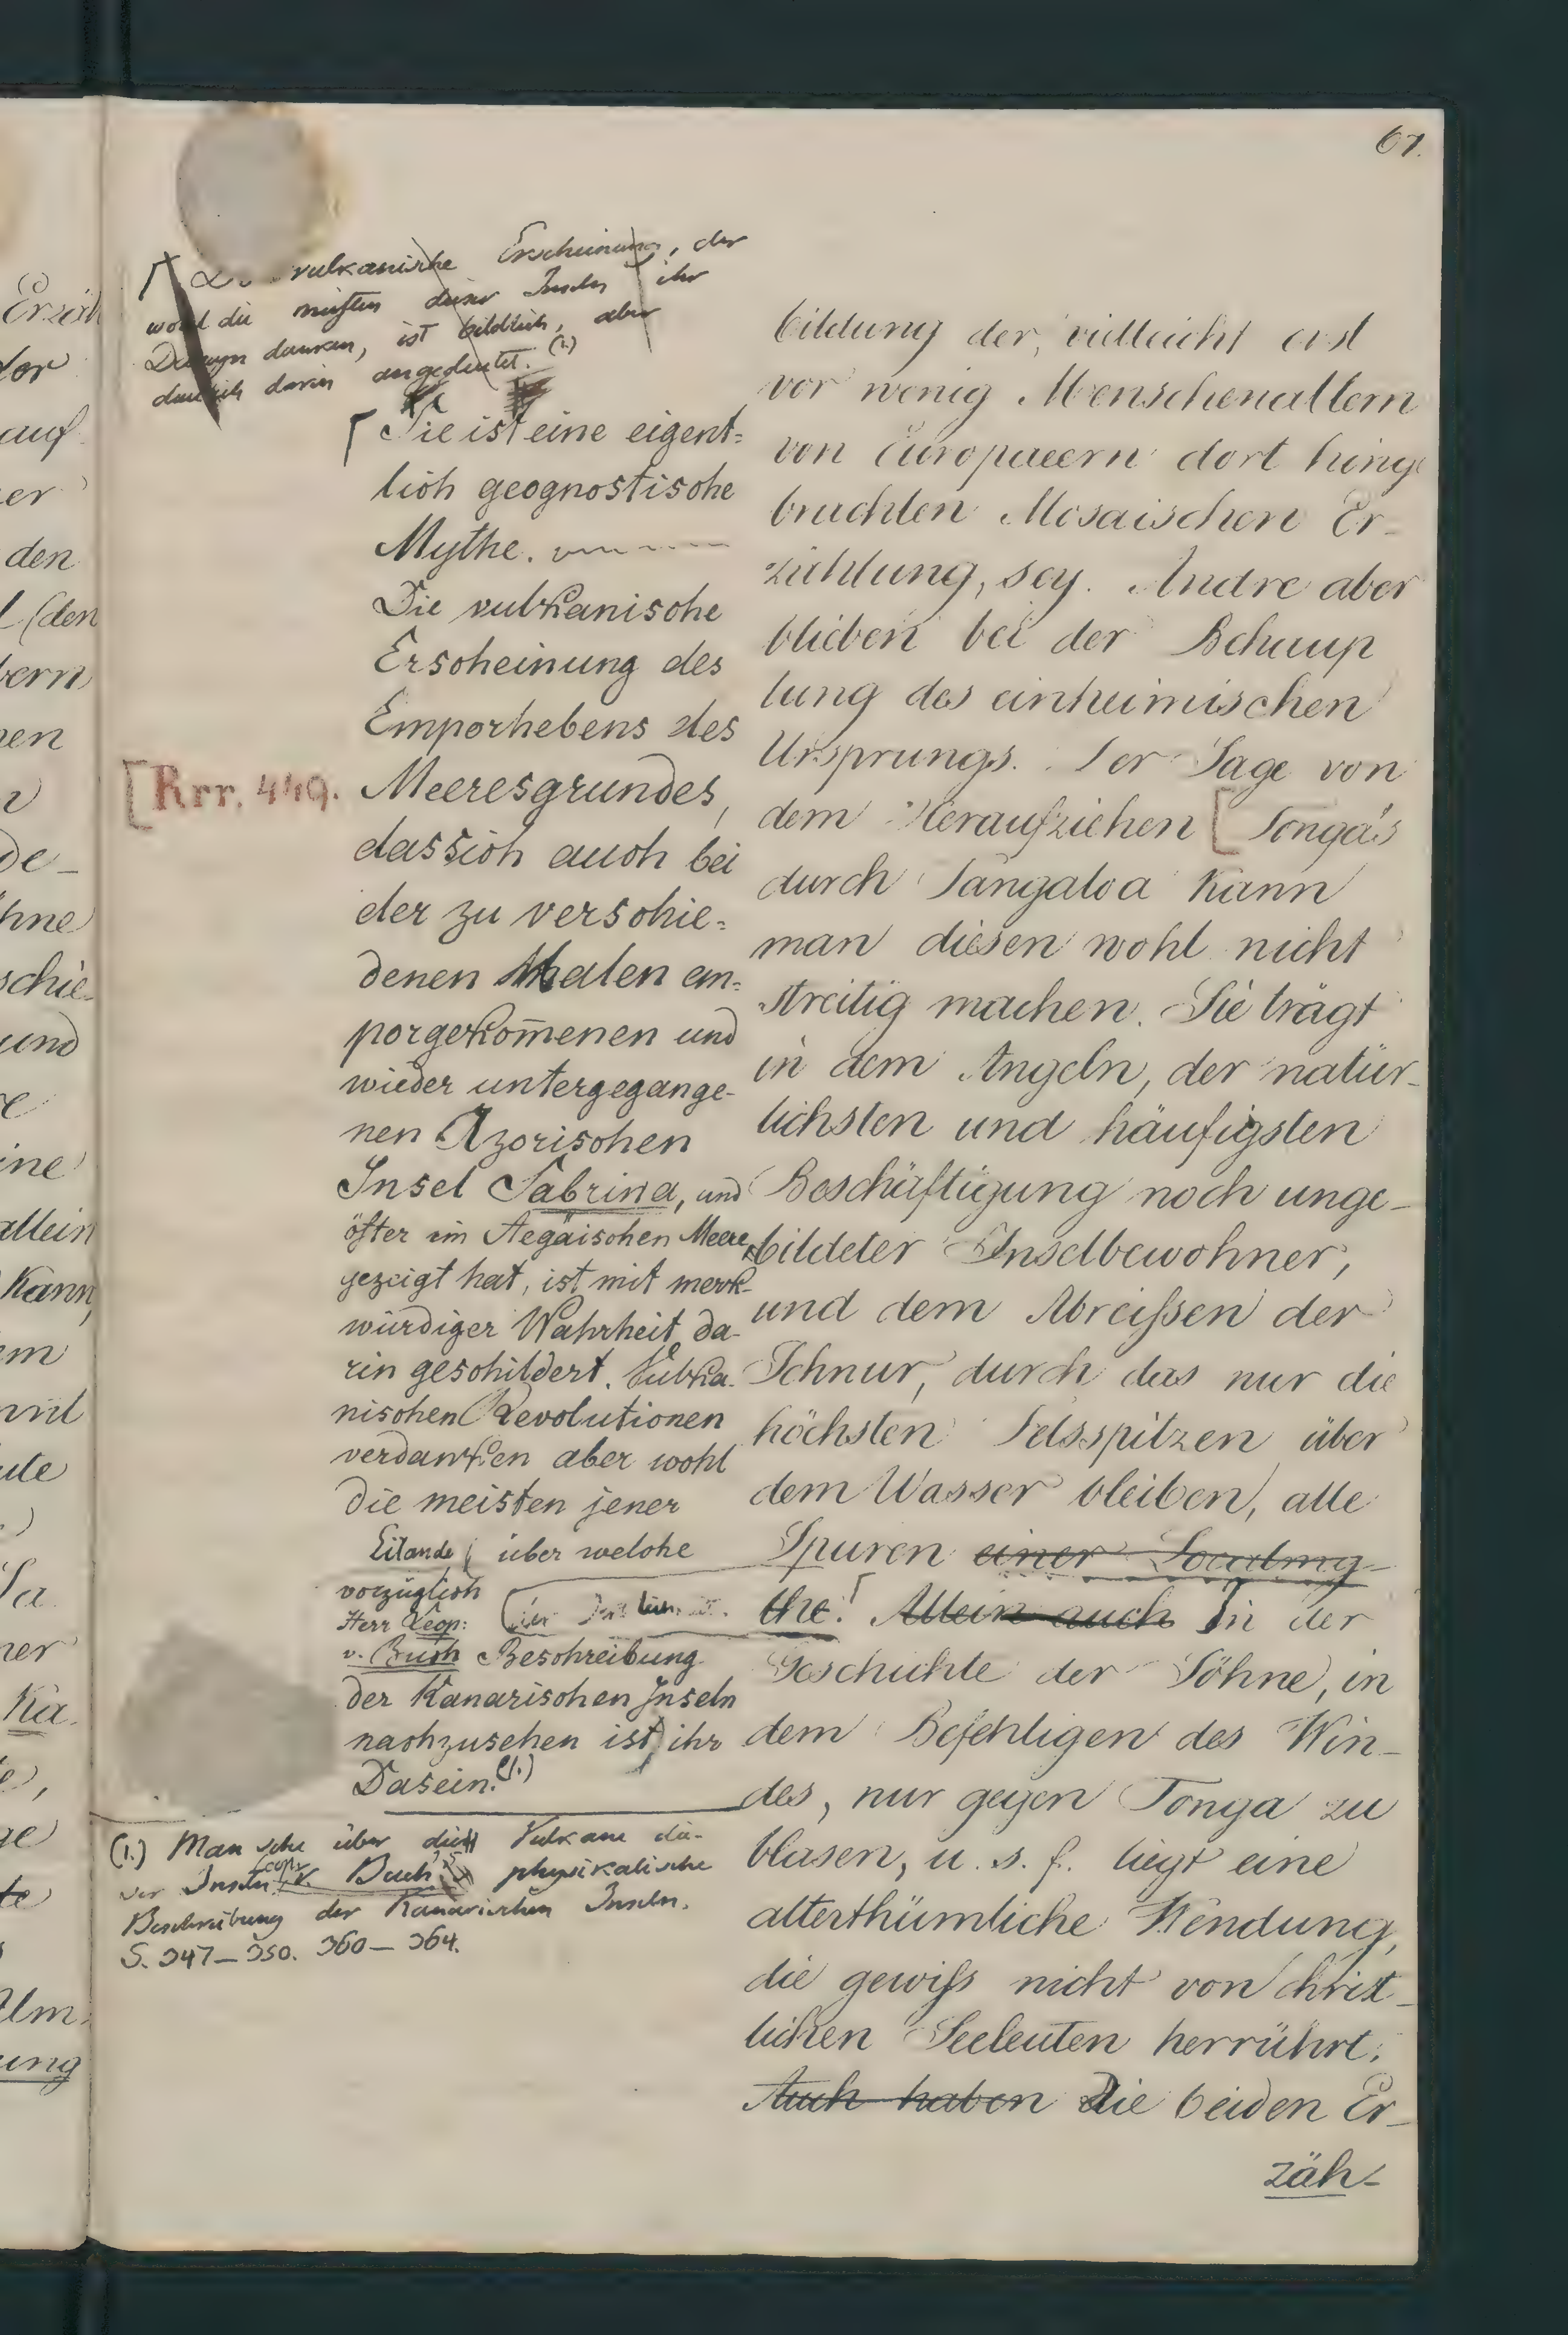 67.
vulkanische Erscheinung, der
wohl die meisten dieser Inseln ihr
Daseyn danken, ist bildlich, aber
deutlich darin angedeutet. (1.)
Sie ist eine eigent=
lich geognostische
Mythe.
Die vulkanische
Erscheinung des
Emporhebens des
Meeresgrundes,
das sich auch bei
der zu verschie=
denen Malen em=
porgekom̄enen und
wieder untergegange-
nen Azorischen
Insel Sabrina, und
öfter im Aegäischen Meere
gezeigt hat, ist mit merk-
würdiger Wahrheit da-
rin geschildert. Vulka-
nischen Revolutionen
verdanken aber wohl
die meisten jener
Eilande (über welche
vorzüglich
Herr Leop:
v. Buch Beschreibung
der Kanarischen Inseln
nachzusehen ist) ihr
Dasein. (1.)
(1.) Man sehe über die Vulkane die-
ser Inseln Leop. v. Buch physikalische
Beschreibung der Kanarischen Inseln.
S. 347–350. 360–364.
[Rrr. 449.
bildung der, vielleicht erst
vor wenig Menschenaltern
von Europaeern dort hinge
brachten Mosaischen Er-
zählung, sey. Andre aber
blieben bei der Behaup
tung des einheimischen
Ursprungs. Der Sage von
dem Heraufziehen [Tonga's
durch Tangaloa kann
man diesen wohl nicht
streitig machen. Sie trägt
in dem Angeln, der natür-
lichsten und häufigsten
Beschäftigung noch unge-
bildeter Inselbewohner,
und dem Abreißen der
Schnur, durch das nur die
höchsten Felsspitzen über
dem Wasser bleiben, alle
Spuren einer Localmy-
the. Allein auch In der
Geschichte der Söhne, in
dem Befehligen des Win-
des, nur gegen Tonga zu
blasen, u. s. f. liegt eine
alterthümliche Wendung,
die gewiß nicht von christ-
lichen Seeleuten herrührt.
Auch haben Die beiden Er-
zäh-